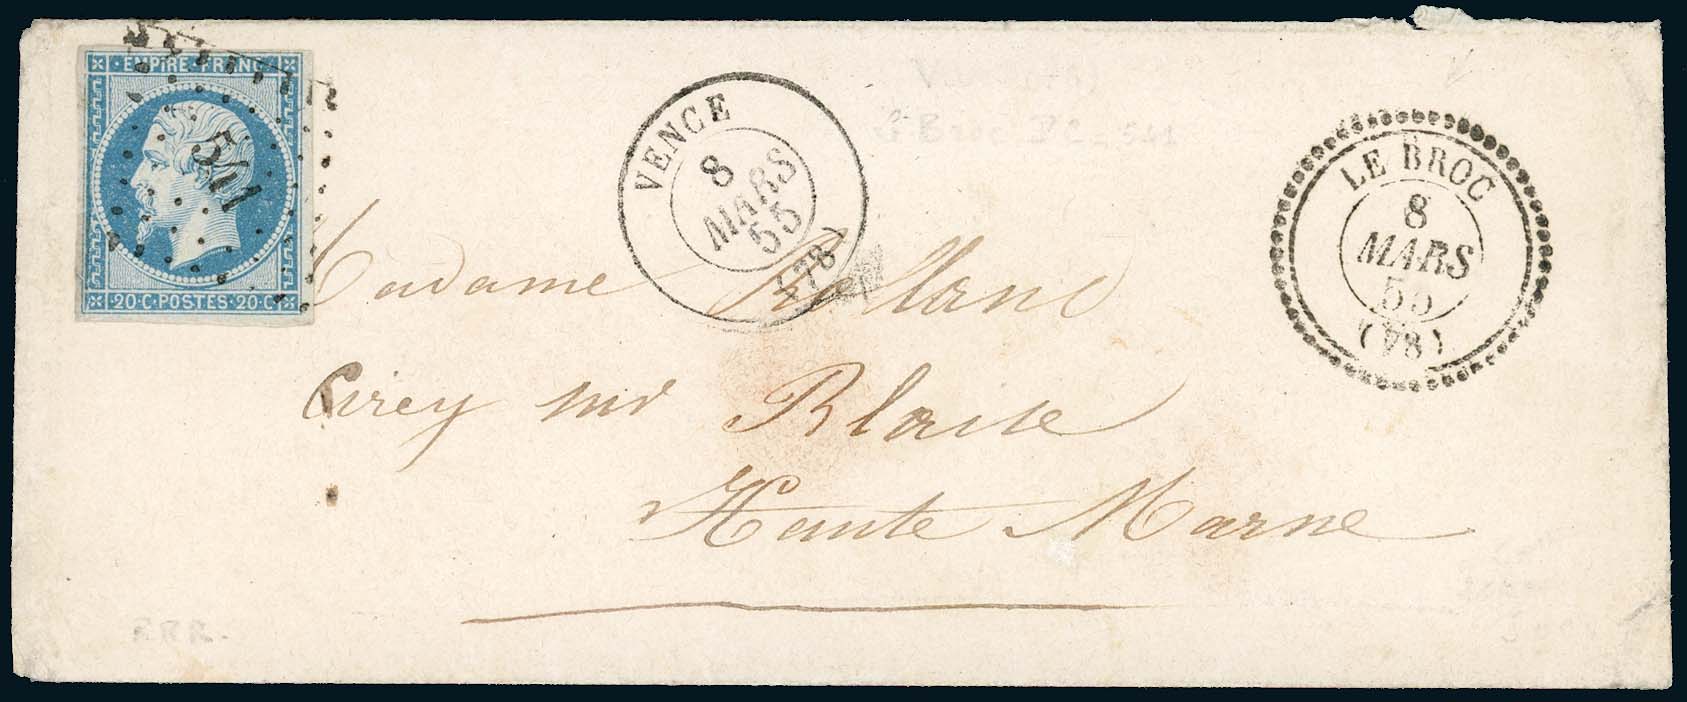 EMPIRE FRANC
541
20·C·POSTES·20·C
VENCE
8
MARS
55
(78)
LE BROC
8
MARS
55
(78)
Le Broc PC 541
Madame Rolland
Cirey sur Blaise
Haute Marne